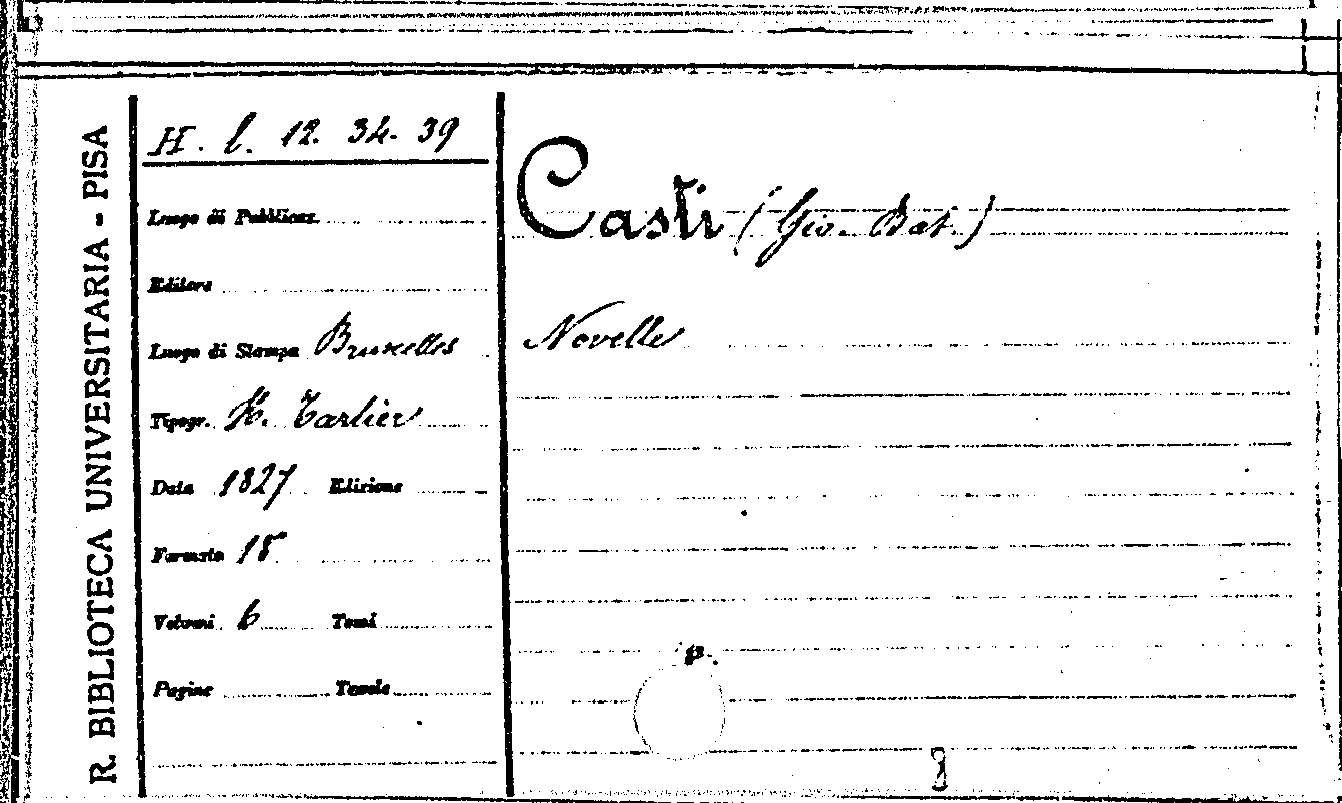 R. BIBLIOTECA UNIVERSITARIA - PISA
H. l. 12. 34-39
Luogo di Pubblicaz.
Editore
Luogo di Stampa Bruxelles
Tipogr. H. Tarlier
Data 1827 Edizione
Formato 18
Volumi 6 Tomi
Pagine Tavole
Casti (Gio. Bat.)
Novelle